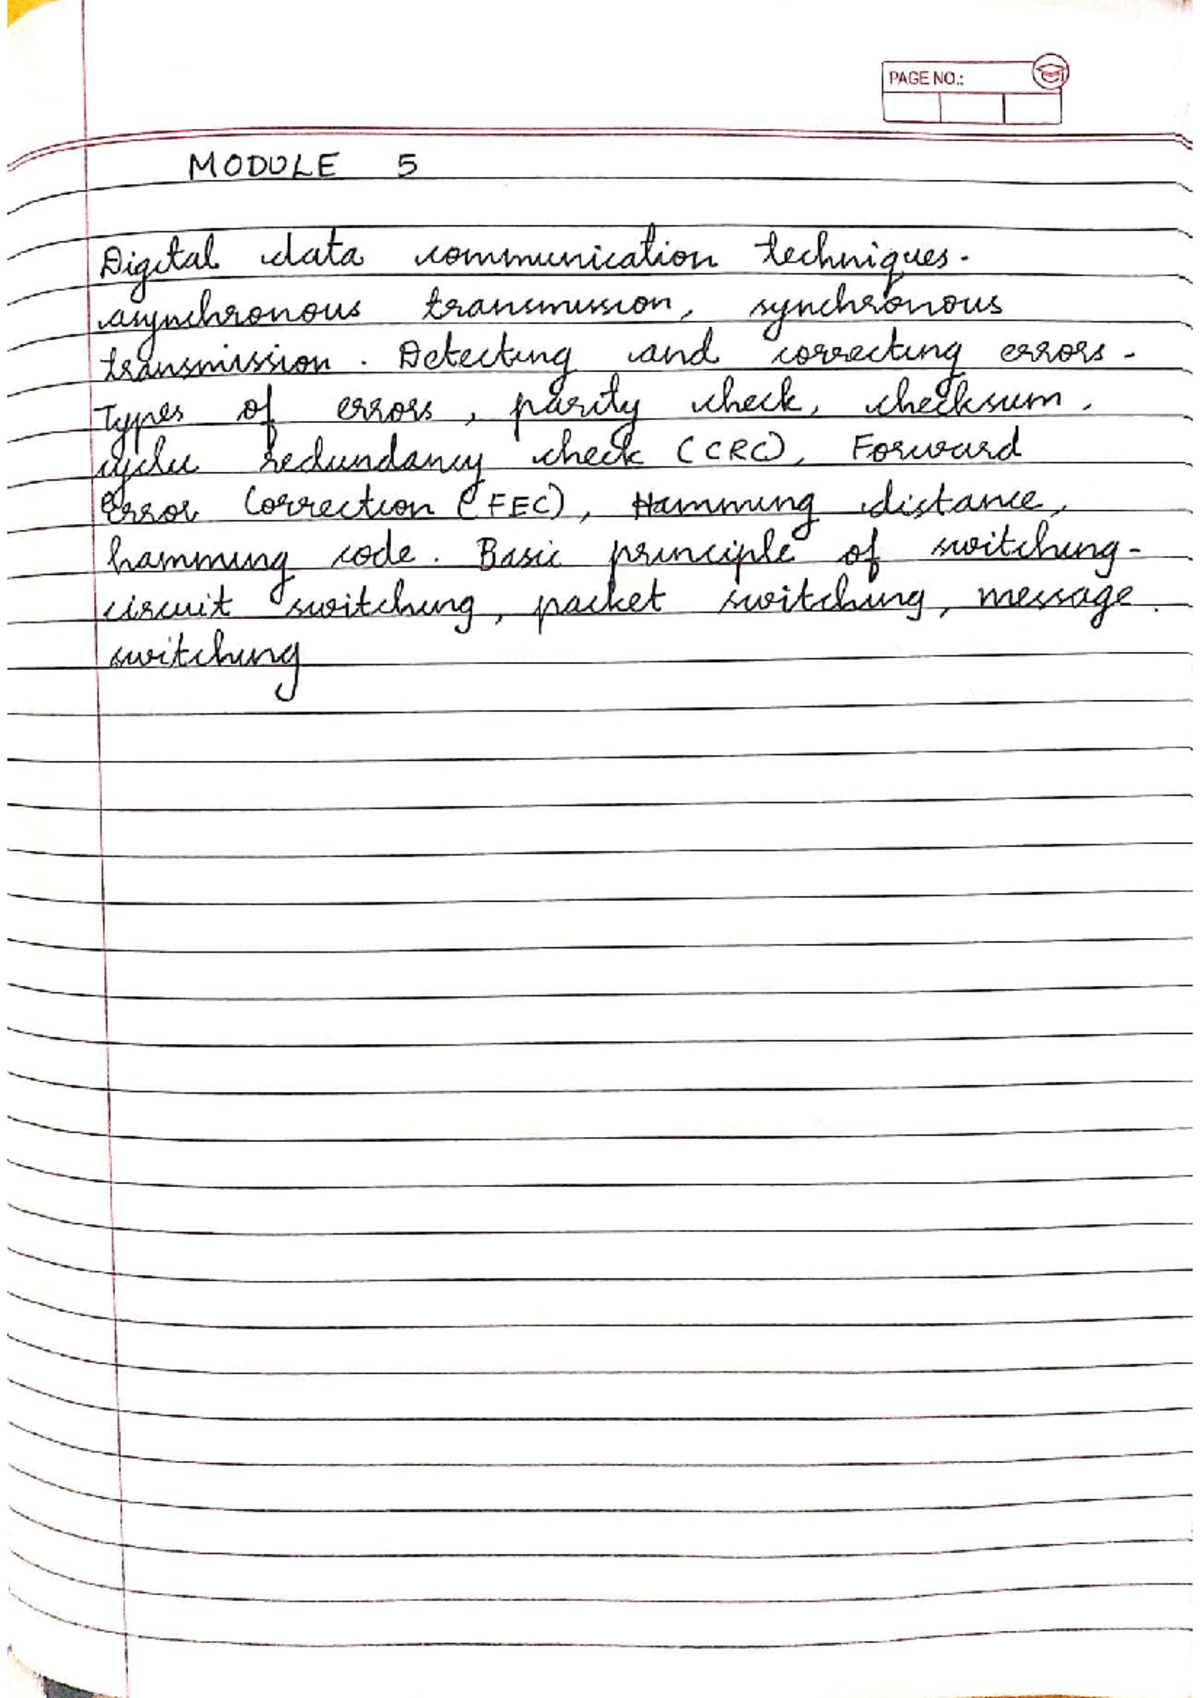 PAGE NO.:
MODULE 5
Digital data communication techniques -
asynchronous transmission, synchronous
transmission. Detecting and correcting errors -
Types of errors, parity check, checksum,
cyclic redundancy check (CRC), Forward
Error Correction (FEC), Hamming distance,
hamming code. Basic principle of switching -
circuit switching, packet switching, message
switching